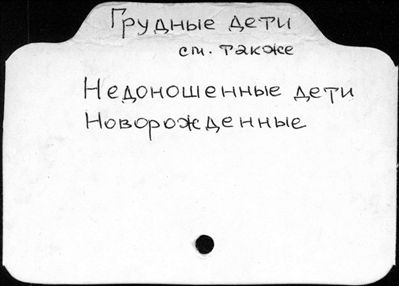 Грудные дети
см. также
Недоношенные дети
Новорожденные